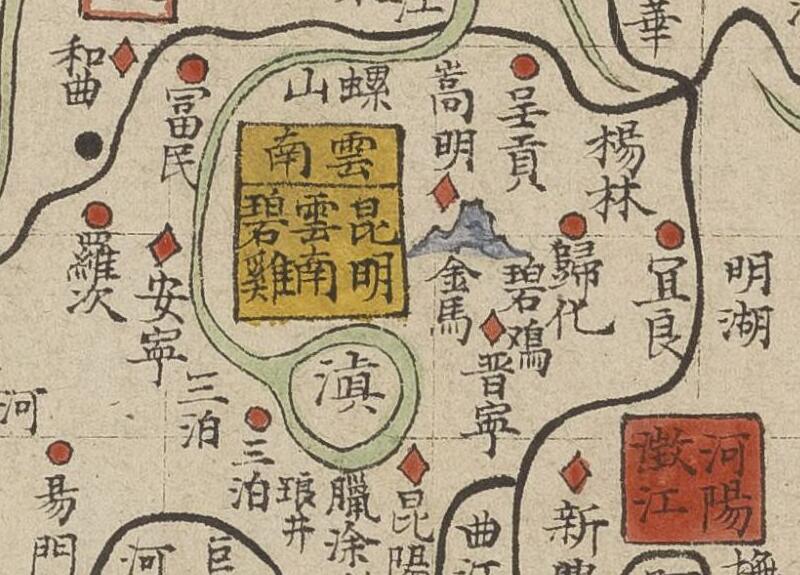 華
和曲
富民
螺山
嵩明
呈貢
楊林
雲南
昆明
雲南
碧雞
羅次
安寧
金馬
碧鳮
歸化
宜良
明湖
滇
晋寧
三泊
三泊
河
易門
琅井
昆陽
曲江
新興
河陽
澂江
河